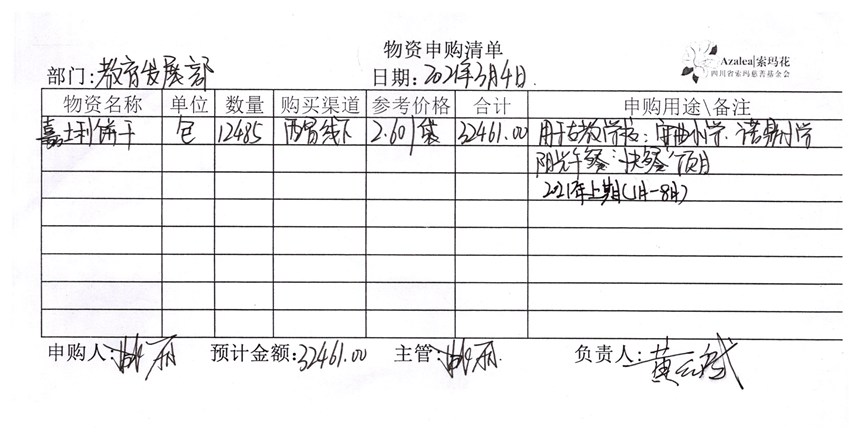 物资申购清单
Azalea|索玛花
四川省索玛慈善基金会
部门:教育发展部
日期:2021年3月4日.
物资名称 单位 数量 购买渠道 参考价格 合计 申购用途\备注
嘉士利饼干 包 12485 西昌线下 2.60/袋 32461.00 用于支教学校: 小学·诺 小学
阳光午餐:快餐项目
2021年上期(1月-8月)
申购人: 丽 预计金额:32461.00 主管: 丽. 负责人:黄